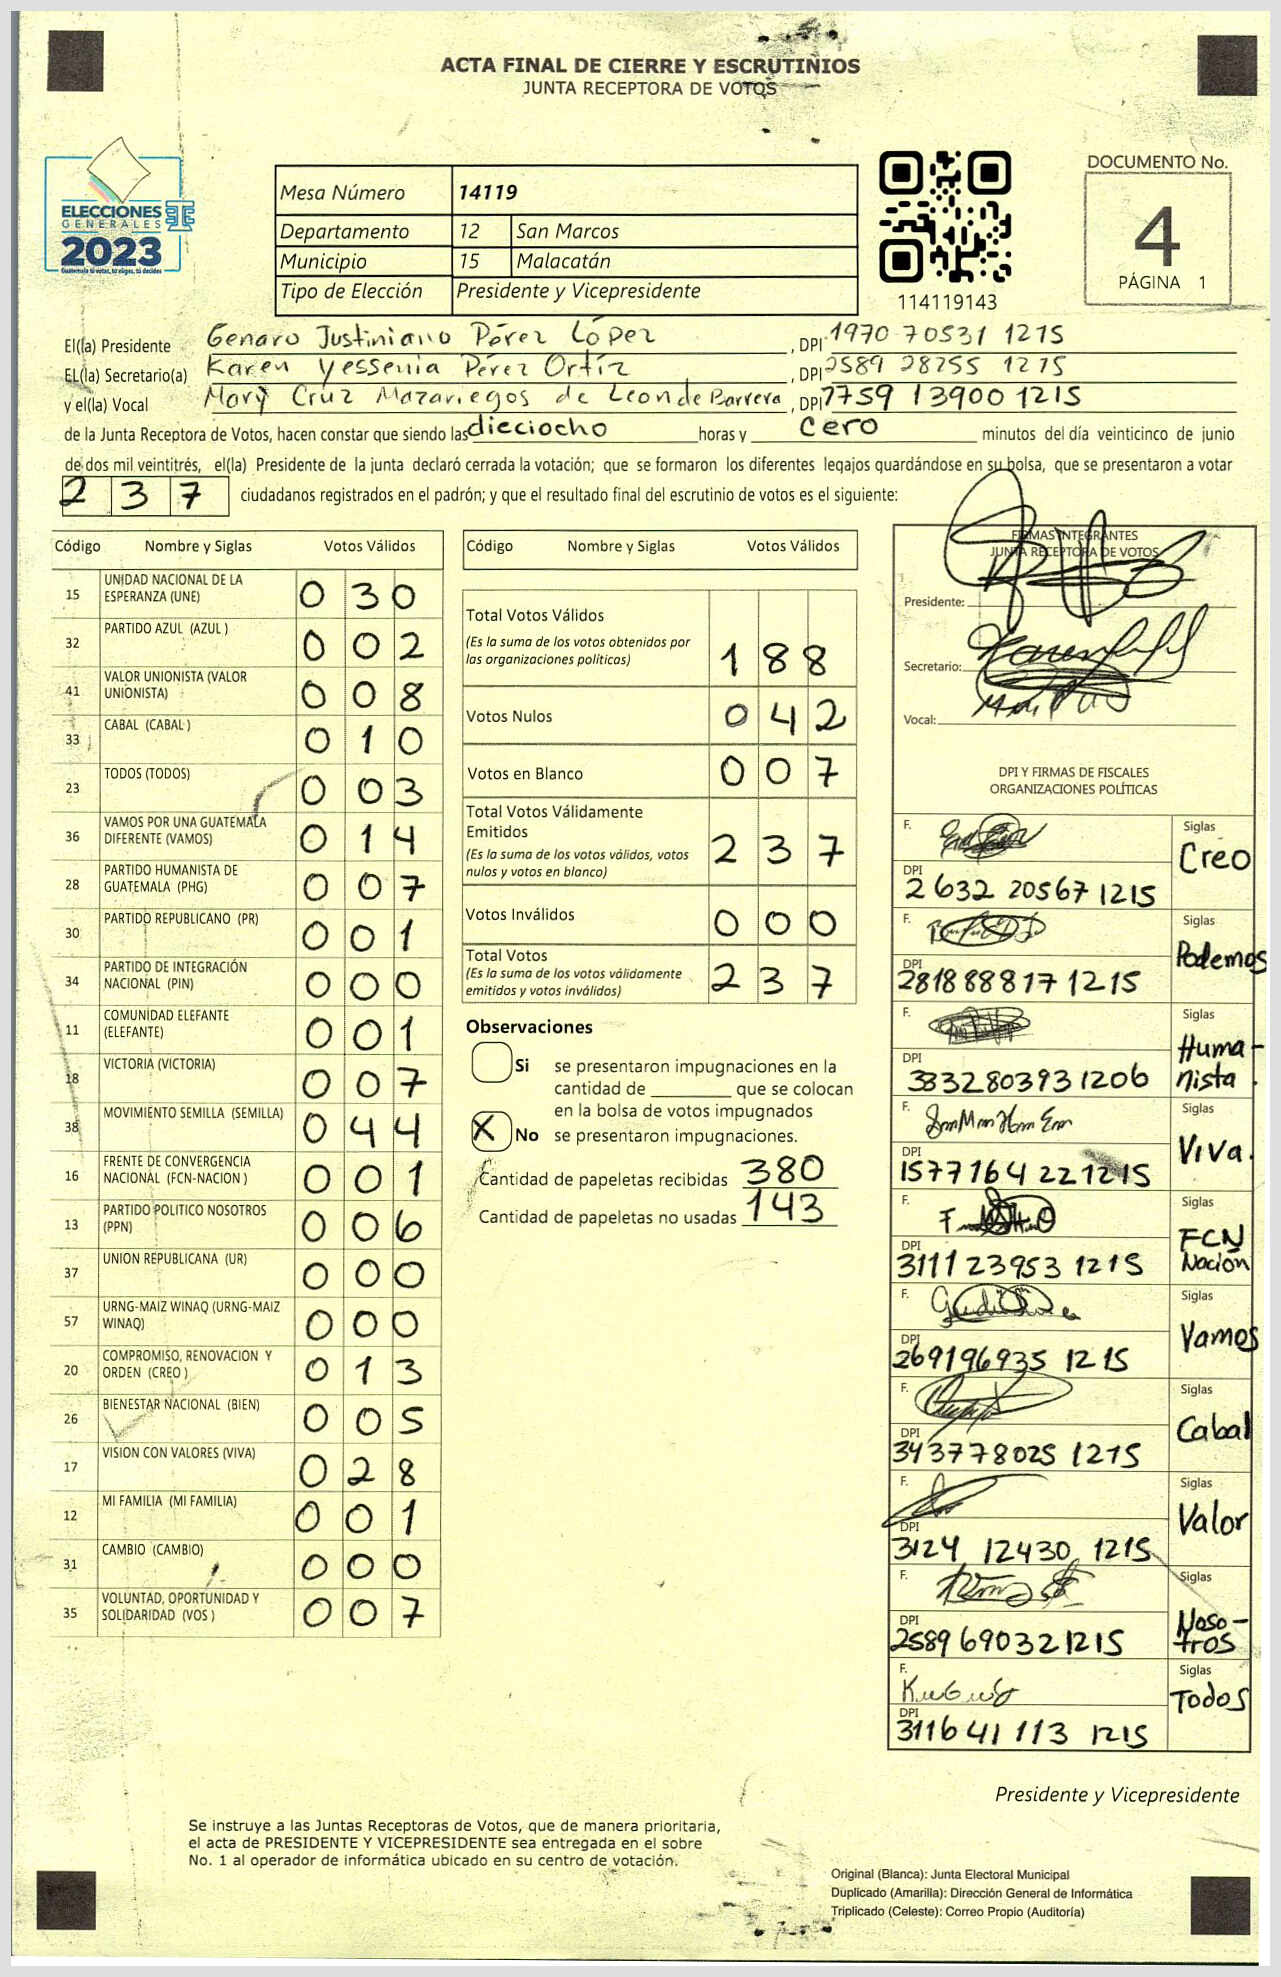 ACTA FINAL DE CIERRE Y ESCRUTINIOS
JUNTA RECEPTORA DE VOTOS
ELECCIONES
GENERALES
2023
Guatemala tú votas, tú eliges, tú decides
Mesa Número 14119
Departamento 12 San Marcos
Municipio 15 Malacatán
Tipo de Elección Presidente y Vicepresidente
114119143
DOCUMENTO No.
4
PÁGINA 1
El(la) Presidente Genaro Justiniano Pérez López, DPI 1970 70531 1215
EL(la) Secretario(a) Karen Yessenia Pérez Ortíz, DPI 2589 28755 1215
y el(la) Vocal Mary Cruz Mazariegos de Leon de Barrera, DPI 1759 13900 1215
de la Junta Receptora de Votos, hacen constar que siendo las dieciocho horas y cero minutos del día veinticinco de junio
de dos mil veintitrés, el(la) Presidente de la junta declaró cerrada la votación; que se formaron los diferentes legajos guardándose en su bolsa, que se presentaron a votar
237 ciudadanos registrados en el padrón; y que el resultado final del escrutinio de votos es el siguiente:
Código Nombre y Siglas Votos Válidos
15 UNIDAD NACIONAL DE LA ESPERANZA (UNE) 030
32 PARTIDO AZUL (AZUL ) 002
41 VALOR UNIONISTA (VALOR UNIONISTA) 008
33 CABAL (CABAL ) 010
23 TODOS (TODOS) 003
36 VAMOS POR UNA GUATEMALA DIFERENTE (VAMOS) 014
28 PARTIDO HUMANISTA DE GUATEMALA (PHG) 007
30 PARTIDO REPUBLICANO (PR) 001
34 PARTIDO DE INTEGRACIÓN NACIONAL (PIN) 000
11 COMUNIDAD ELEFANTE (ELEFANTE) 001
18 VICTORIA (VICTORIA) 007
38 MOVIMIENTO SEMILLA (SEMILLA) 044
16 FRENTE DE CONVERGENCIA NACIONAL (FCN-NACION ) 001
13 PARTIDO POLITICO NOSOTROS (PPN) 006
37 UNION REPUBLICANA (UR) 000
57 URNG-MAIZ WINAQ (URNG-MAIZ WINAQ) 000
20 COMPROMISO, RENOVACION Y ORDEN (CREO ) 013
26 BIENESTAR NACIONAL (BIEN) 005
17 VISION CON VALORES (VIVA) 028
12 MI FAMILIA (MI FAMILIA) 001
31 CAMBIO (CAMBIO) 000
35 VOLUNTAD, OPORTUNIDAD Y SOLIDARIDAD (VOS ) 007
Código Nombre y Siglas Votos Válidos
Total Votos Válidos 188
(Es la suma de los votos obtenidos por las organizaciones políticas)
Votos Nulos 042
Votos en Blanco 007
Total Votos Válidamente Emitidos 237
(Es la suma de los votos válidos, votos nulos y votos en blanco)
Votos Inválidos 000
Total Votos 237
(Es la suma de los votos válidamente emitidos y votos inválidos)
Observaciones
Si se presentaron impugnaciones en la
cantidad de ________ que se colocan
en la bolsa de votos impugnados
X No se presentaron impugnaciones.
Cantidad de papeletas recibidas 380
Cantidad de papeletas no usadas 143
FIRMAS INTEGRANTES
JUNTA RECEPTORA DE VOTOS
Presidente:
Secretario:
Vocal:
DPI Y FIRMAS DE FISCALES
ORGANIZACIONES POLÍTICAS
F. Siglas Creo
DPI 2632 20567 1215
F. Siglas Podemos
DPI 2818 88817 1215
F. Siglas Humanista
DPI 3332803931206
F. Siglas Viva.
DPI 1577164 22 1215
F. Siglas FCN Nación
DPI 3111 23953 1215
F. Siglas Vamos
DPI 269196935 1215
F. Siglas Cabal
DPI 343778025 1215
F. Siglas Valor
DPI 3124 12430 1215
F. Siglas Nosotros
DPI 2589 69032 1215
F. Siglas Todos
DPI 311641113 1215
Presidente y Vicepresidente
Se instruye a las Juntas Receptoras de Votos, que de manera prioritaria,
el acta de PRESIDENTE Y VICEPRESIDENTE sea entregada en el sobre
No. 1 al operador de informática ubicado en su centro de votación.
Original (Blanca): Junta Electoral Municipal
Duplicado (Amarilla): Dirección General de Informática
Triplicado (Celeste): Correo Propio (Auditoría)